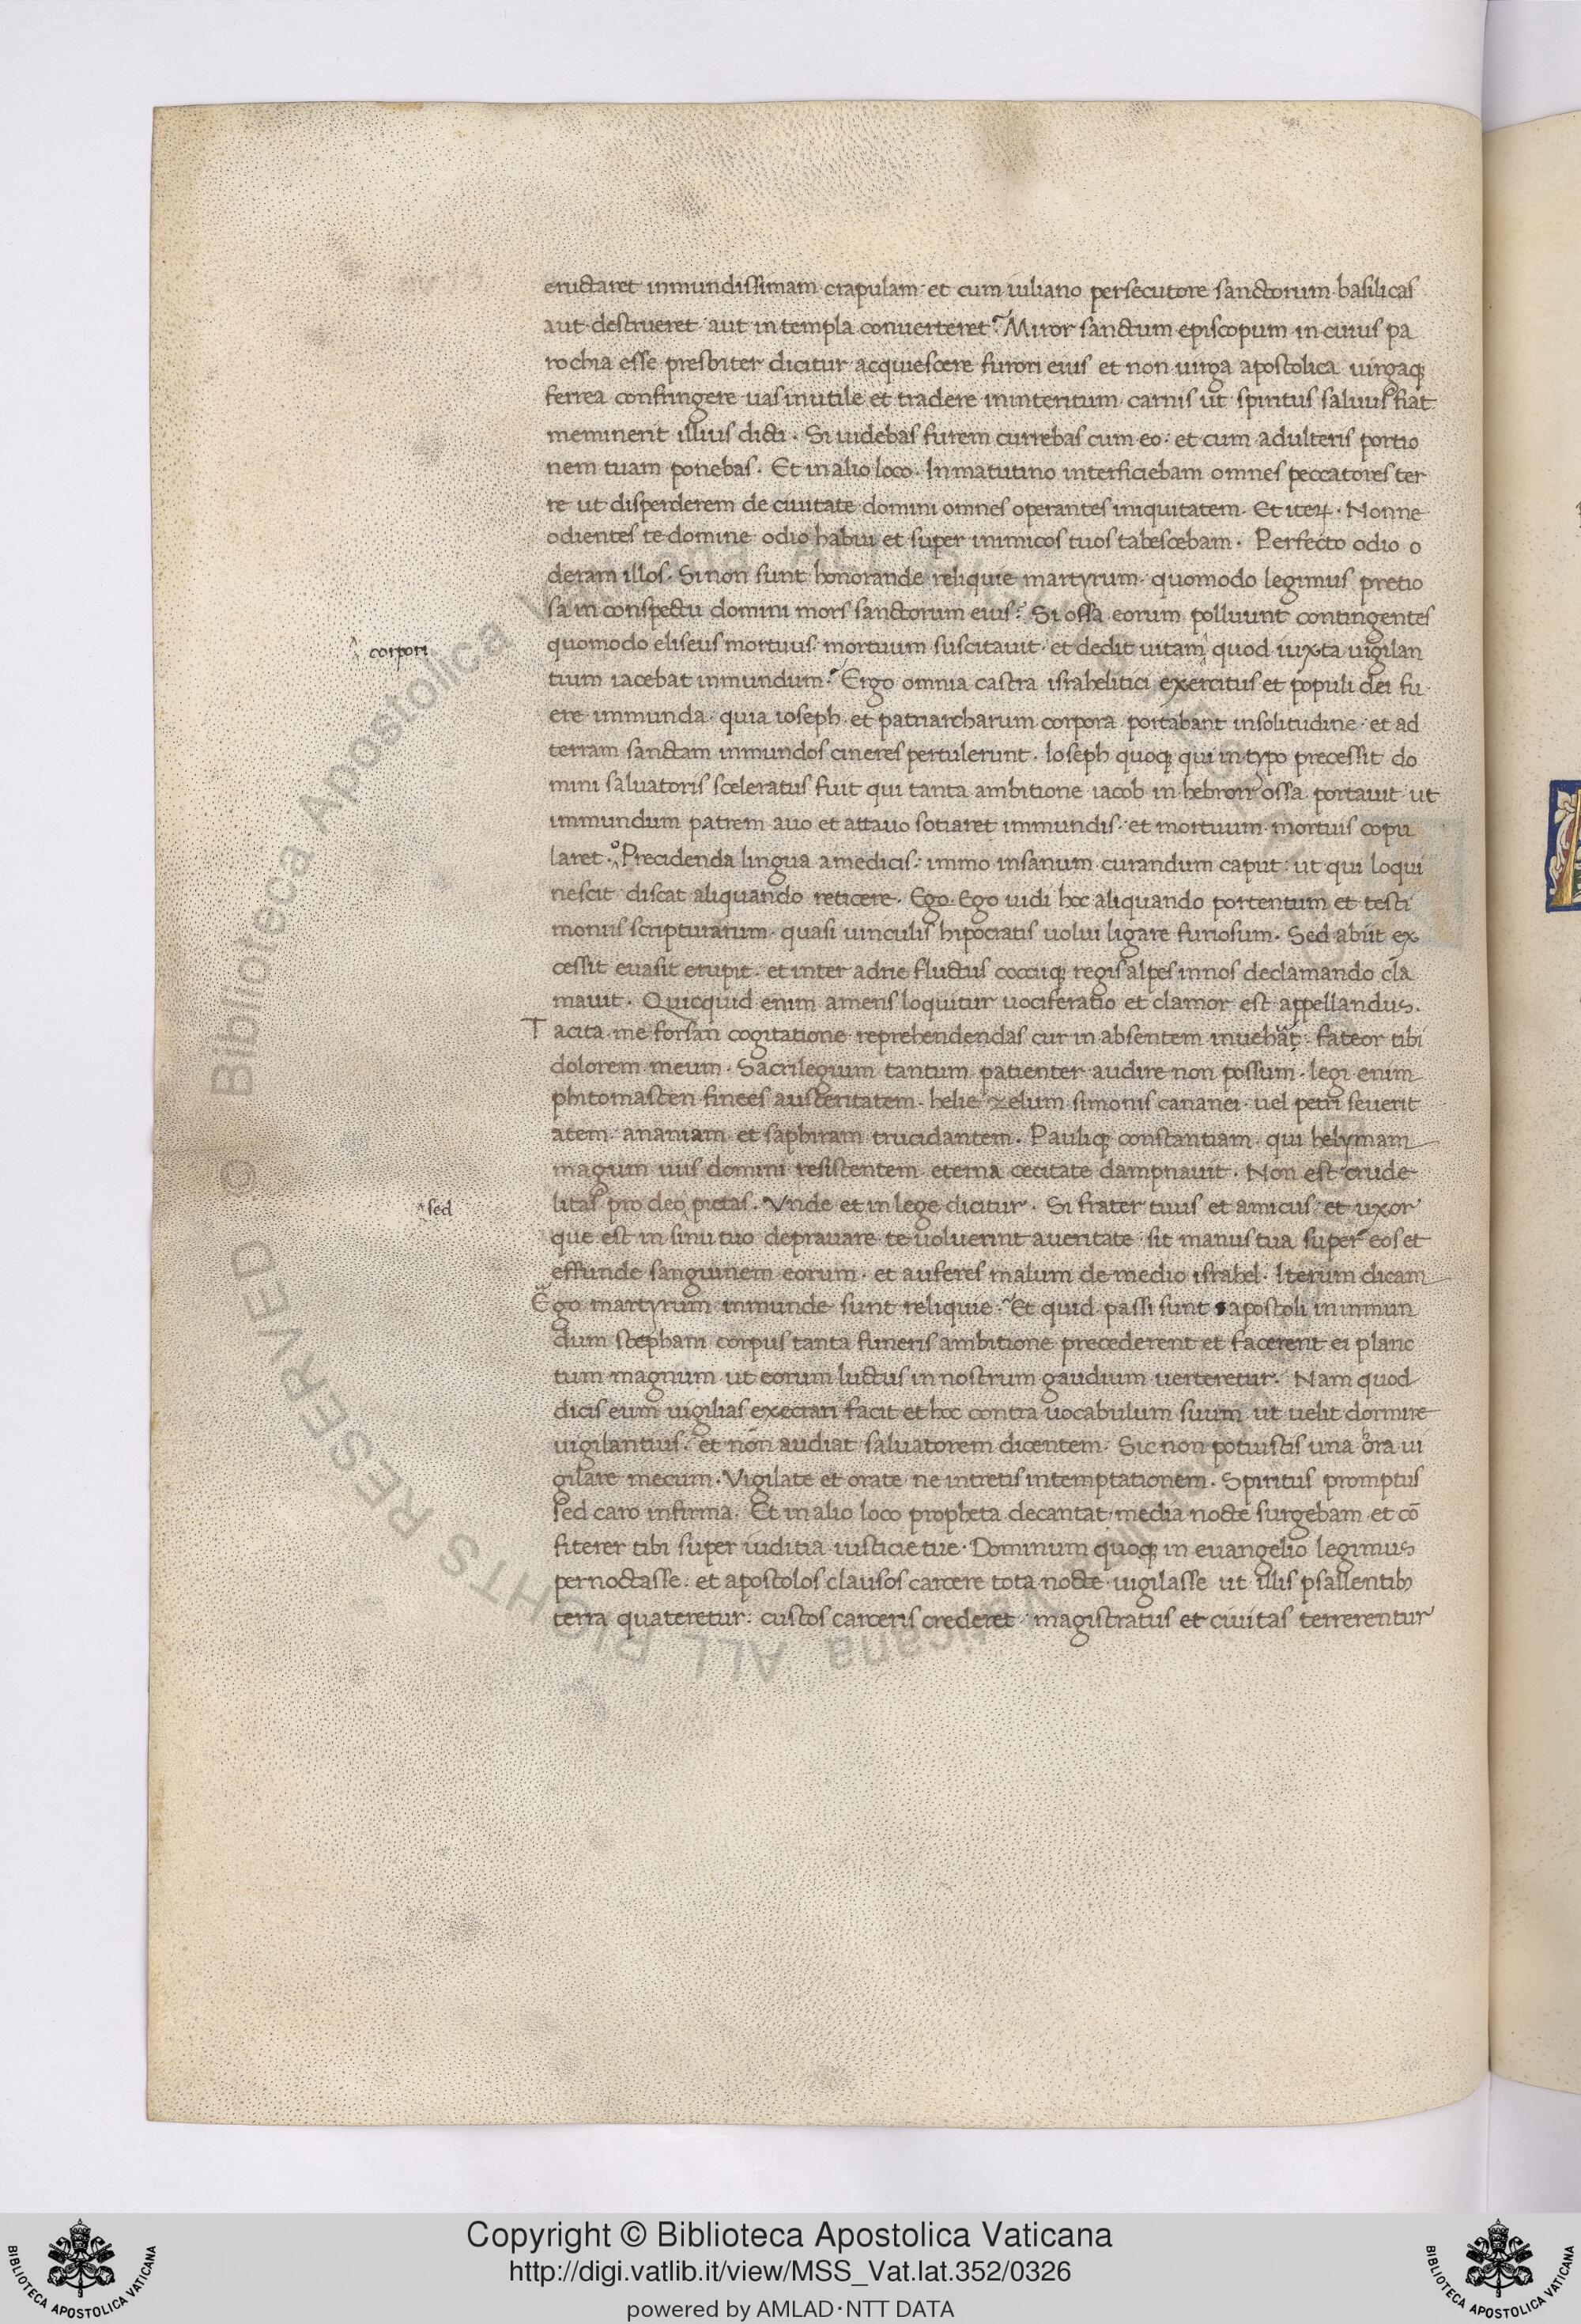 eructaret inmundissimam crapulam· et cum iuliano persecutore sanctorum basilicas
aut destrueret aut in templa conuerteret? Miror sanctum episcopum in cuius pa
rochia esse presbiter dicitur acquiescere furori eius et non uirga apostolica uirgaq;
ferrea confringere uas inutile et tradere in interitum carnis ut spiritus saluus fiat
meminerit illius dicti· Si uidebas furem currebas cum eo· et cum adulteris portio
nem tuam ponebas· Et in alio loco· In matutino interficiebam omnes peccatores ter
re ut disperderem de ciuitate domini omnes operantes iniquitatem· Et iterꝝ· Nonne
odientes te domine odio habui et super inimicos tuos tabescebam· Perfecto odio o
deram illos· Si non sunt honorande reliquie martyrum· quomodo legimus pretio
sa in conspectu domini mors sanctorum eius? Si ossa eorum polluunt contingentes
^ corpori
quomodo eliseus mortuus· mortuum suscitauit· et dedit uitam^ quod iuxta uigilan
tium iacebat inmundum? Ergo omnia castra israhelitici exercitus et populi dei fu
ere immunda· quia ioseph et patriarcharum corpora portabant in solitudine· et ad
terram sanctam inmundos cineres pertulerunt· Ioseph quoq; qui in typo precessit do
mini saluatoris sceleratus fuit qui tanta ambitione iacob in hebron ossa portauit ut
immundum patrem auo et attauo sotiaret immundis· et mortuum mortuis copu
laret· o Precidenda lingua a medicis· immo insanum curandum caput· ut qui loqui
nescit discat aliquando reticere· Ego Ego uidi hoc aliquando portentum et testi
moniis scripturarum· quasi uinculis hipocratis uolui ligare furiosum· Sed abiit ex
cessit euasit erupit· et inter adrie fluctus cocciiq; regis alpes in nos declamando cla
mauit· Quicquid enim amens loquitur uociferatio et clamor est appellandus·
Tacita me forsan cogitatione reprehendendas cur in absentem inuehar· fateor tibi
dolorem meum· Sacrilegium tantum patienter audire non possum· legi enim
phitomasten finees austeritatem· helie zelum simonis cananei· uel petri seuerit
atem· ananiam et saphiram trucidantem· Pauliq; constantiam qui helymam
magum uiis domini resistentem eterna cecitate dampnauit· Non est crude
^ sed
litas pro deo^ pietas· Vnde et in lege dicitur· Si frater tuus et amicus et uxor
que est in sinu tuo deprauare te uoluerint a ueritate· sit manus tua super eos et
effunde sanguinem eorum· et auferes malum de medio israhel· Iterum dicam
Ego martyrum inmunde sunt reliquie· Et quid passi sunt apostoli in inmun
dum stephani corpus tanta funeris ambitione precederent et facerent ei planc
tum magnum ut eorum luctus in nostrum gaudium uerteretur· Nam quod
dicis eum uigilias execrari facit et hoc contra uocabulum suum ut uelit dormire
uigilantius· et non audiat saluatorem dicentem· Sic non potuistis una ora ui
gilare mecum· Vigilate et orate ne intretis in temptationem· Spiritus promptus
sed caro infirma· Et in alio loco propheta decantat· media nocte surgebam et cō
fiterer tibi super iuditia iusticie tue· Dominum quoq; in euangelio legimus
pernoctasse· et apostolos clausos carcere tota nocte uigilasse ut illis psallentib;
terra quateretur· custos carceris crederet· magistratus et ciuitas terrerentur
Copyright © Biblioteca Apostolica Vaticana
http://digi.vatlib.it/view/MSS_Vat.lat.352/0326
powered by AMLAD·NTT DATA
BIBLIOTECA APOSTOLICA VATICANA
BIBLIOTECA APOSTOLICA VATICANA